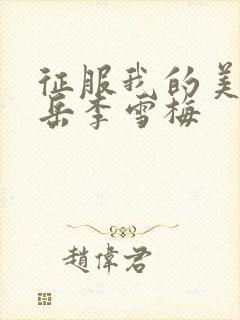 征服我的美
岳李雪梅
趙偉君